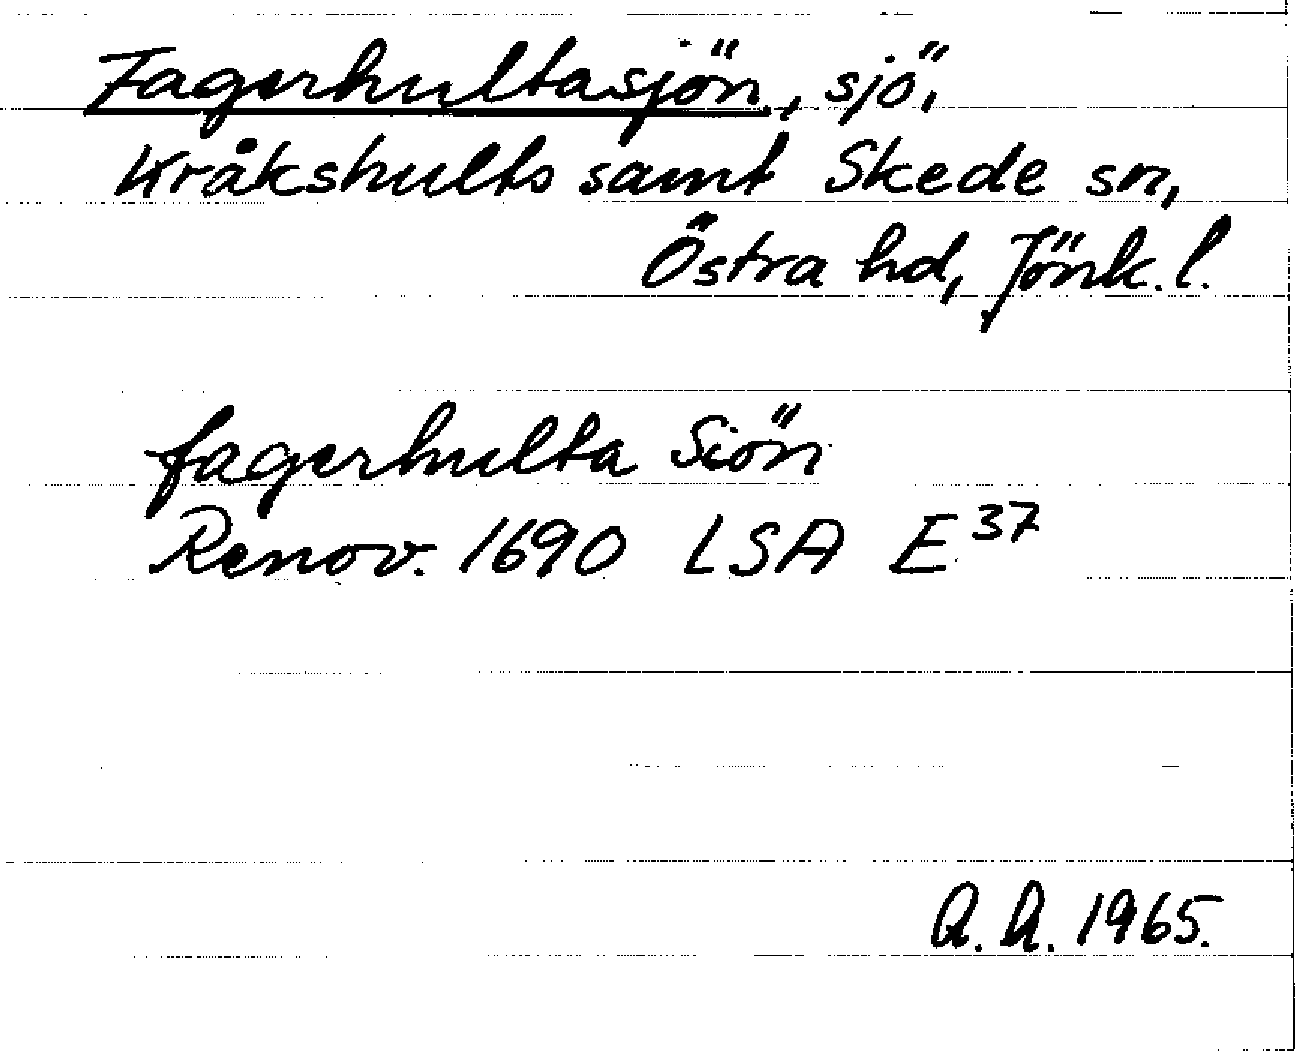 Fagerhultasjön, sjö,
Kråkshults samt Skede sn,
Östra hd, Jönk. l.
fagerhulta Siön
Renov. 1690 LSA E 37
A. A. 1965.